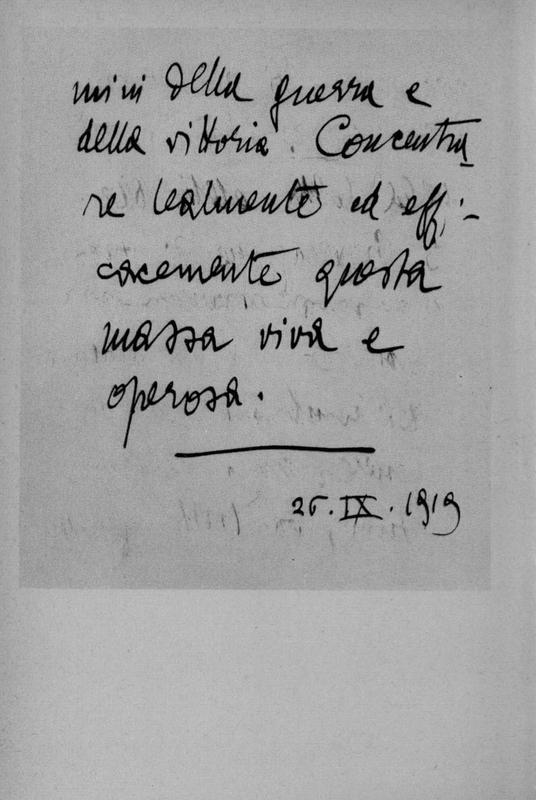 mini della guerra e
della vittoria. Concentra-
re lealmente ed effi-
cacemente questa
massa viva e
operosa.
25.IX.1919